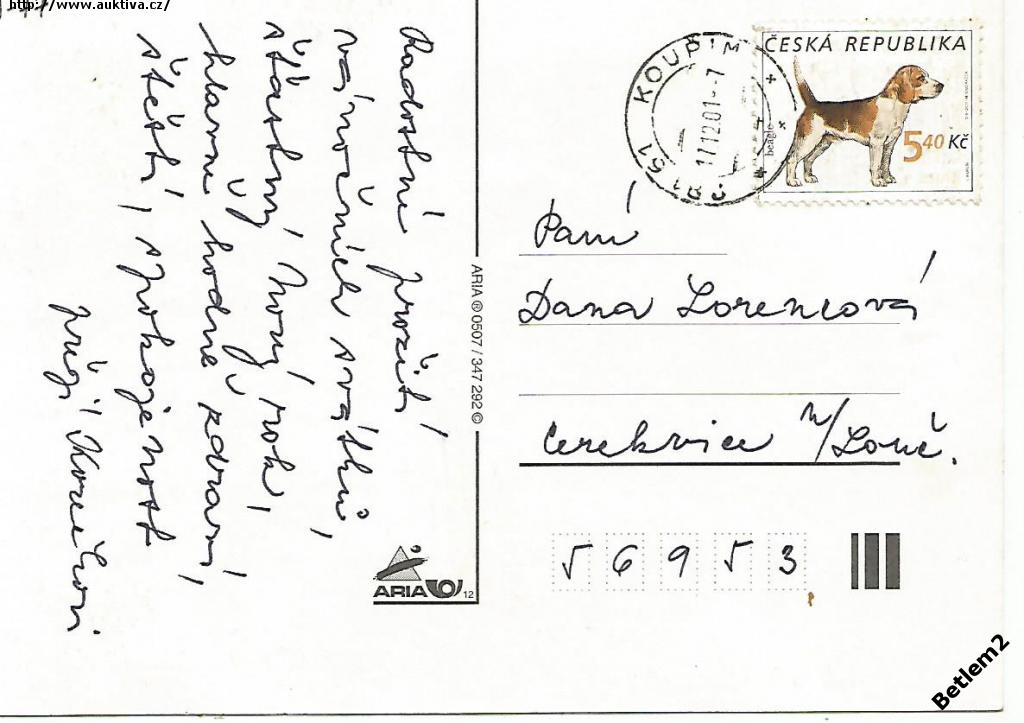 http://www.auktiva.cz/
Radostné prožití
vánočních svátků,
šťastný nový rok,
hlavně hodně zdraví,
štěstí, spokojenost
přejí
ARIA ® 0507 / 347 292 ©
ARIA
12
KOUŘIM
281 51
17.12.01-7
ČESKÁ REPUBLIKA
beagle
5,40 Kč
Paní
Dana Lorencová
Cerekvice n/Louč.
56953
Betlem2